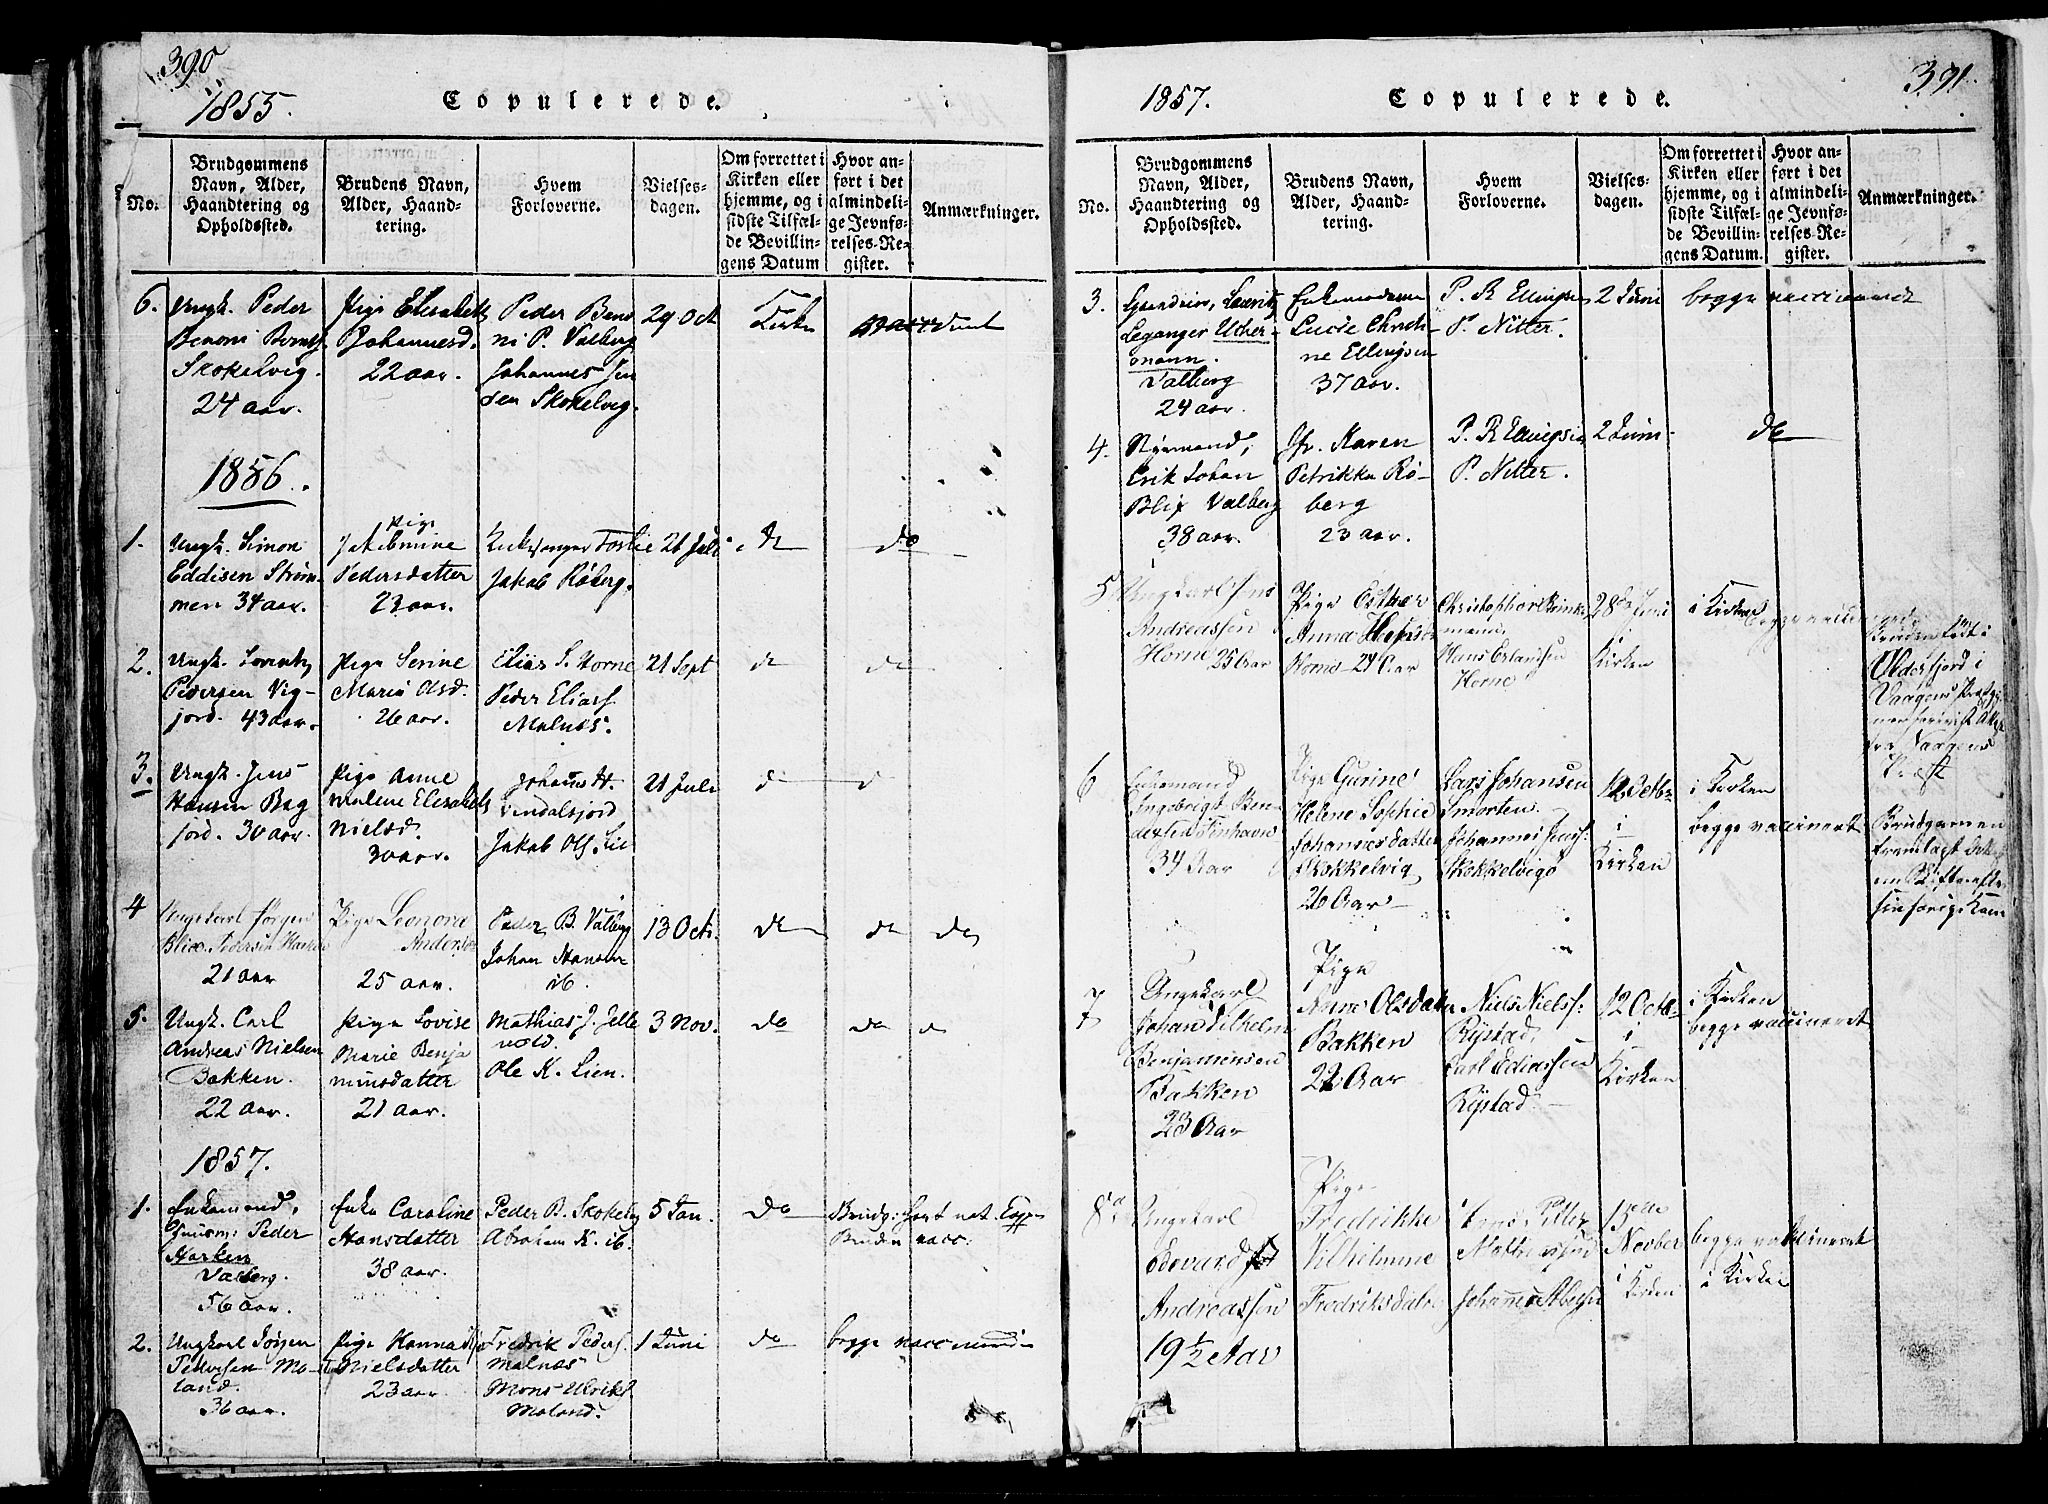 390
1855.
Copulerede.
No.
Brudgommens
Navn, Alder,
Haandtering og
Opholdssted.
Brudens Navn,
Alder, Haand-
tering.
Hvem
Forloverne.
Vielses-
dagen.
Om forrettet i
Kirken eller
hjemme, og i
sidste Tilfæl-
de Bevillin-
gens Datum
Hvor an-
ført i det
almindeli-
ge Jevnfø-
relses-Re-
gister.
Anmærkninger.
6.
Ungk. Peder
Benoni Berntz
Skokelvig.
24 aar.
Pige Elisabeth
Johannesd.
22 aar.
Peder Beno
ni P. Valberg
Johannes Jen
sen Skokelvig.
29 Oct
Kirke
1856.
1.
Ungk. Simon
Eddisen Strøm-
men 34 aar.
Pige
Jakobmine
Pedersdatter
23 aar.
Kirkesanger
Jakob Röberg.
21 Juli
do
do
2.
Ungk. Lorentz
Pedersen Vig-
jord. 43 aar.
Pige Serine
Maria Olsd.
26 aar.
Elias S. Horne
Peder Eliass
Malnæs.
21 Sept
do
do
3.
Ungk. Jens
Hansen Bog
jord. 30 aar.
Pige Anne
Malene Elisabeth
Nielsd.
30 aar.
Johannes H.
Jakob Ols. Lie
21 Juli
d
d
4
Ungekarl Jörgen
Blix Pedersen
21 aar
Pige Leonora
Anders
25 aar.
Peder B. Valberg
Johan Hansen
ib.
13 Oct.
do
do
do
5.
Ungk. Carl
Andreas Nielsen
Bakken.
22 aar.
Pige Lovise
Marie Benja
minsdatter
21 aar.
Mathias J. Jelle
vold.
Ole K. Lien.
3 Nov.
do
do
1857.
1.
Enkemand,
Huusm: Peder
Valberg.
56 aar.
Enke Caroline
Hansdatter
38 aar.
Peder B. Skokelv
Abraham K. ib.
5 Jan.
do
Brudg: havt nat. Kopper
Bruden vacc:
2.
Ungkarl Jörgen
Pedersen Mo-
land.
36 aar.
Pige Hanna
Nielsdatter
23 aar
Fredrik Peders.
Malnæs
Mons Ulriks
Moland.
1 Juni
do
begge
391.
1857.
Copulerede.
No.
Brudgommens
Navn, Alder,
Haandtering og
Opholdssted.
Brudens Navn,
Alder, Haand-
tering.
Hvem
Forloverne.
Vielses-
dagen.
Om forrettet i
Kirken eller
hjemme, og i
sidste Tilfæl-
de Bevillin-
gens Datum.
Hvor an-
ført i det
almindeli-
ge Jevnfø-
relses-Re-
gister.
Anmærkninger.
3.
Lauritz
Leganger Ucher-
mann.
Valberg
24 aar.
Enkemadame
Lucie Chrsti-
ne Ellingsen
37 aar.
P. R Ellingsen
P. Nitter.
2 Juni
begge vaccinerede
4.
Styrmand,
Erik Johan
Blix Valberg
38 aar.
Jfr. Karen
Petrikka Rö-
berg
23 aar.
P. R Ellingsen
P. Nitter.
2 Juni
do
5
Ungkarl Jens
Andreassen
Horne 25 Aar
Pige Esther
Anna
Horne 24 Aar
Christophor Brinke
mann
Hans Erlandsen
Horne
28de Juni
i
Kirken
i Kirken
begge vaccinerede
Bruden født i
Oldersfjord i
Vaagens
fra Vaagens
Præst
6
Enkemand
Ingebrigt Ben-
34 Aar
Pige Gurine
Helene Sophie
Johannesdatter
Skokkelvig
26 Aar
Lars Johansen
Smorten
Johannes Jens:
Skokkelvig
12 Octb:
i
Kirken
i Kirken
begge vaccineret
Brudgommen
fremlagt
7
Ungekarl
Johan Vilhelm
Benjaminsen
Bakken
23 Aar
Pige
Anne Olsdatter
Bakken
22 Aar
Niels Niels:
Rystad,
Carl Ediassen
Rystad
12 Octb:
i
Kirken
i Kirken
begge vaccineret
8
Ungekarl
Edevard
Andreassen
19 1/2 Aar
Pige
Fredrikke
Vilhelmine
Fredriksdatter
Petter
Mathiassen
Johannes
15de
Novber
i Kirken
begge vaccineret
i Kirken